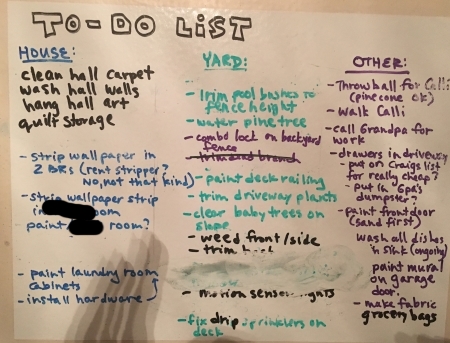 TO-DO LIST
HOUSE:
clean hall carpet
wash hall walls
hang hall art
quilt storage
- strip wallpaper in
2 BRs (rent stripper?
No, not that kind)
- strip wallpaper strip
in room
paint room?
- paint laundry room
cabinets
- install hardware
YARD:
- trim pool bushes to
fence height
- water pine tree
- combo lock on backyard
fence
- trim and branch
- paint deck railing
- trim driveway plants
- clear baby trees on
slope
- weed front/side
- trim
- motion sensor lights
- fix drip sprinklers on
deck
OTHER:
- Throw ball for Calli
(pinecone ok)
- Walk Calli
- call Grandpa for
work
- drawers in driveway
- put on Craigs list
for really cheap?
- put in Gpa's
dumpster?
- paint front door
(sand first)
wash all dishes
in sink (ongoing)
paint mural
on garage
door.
- make fabric
grocery bags